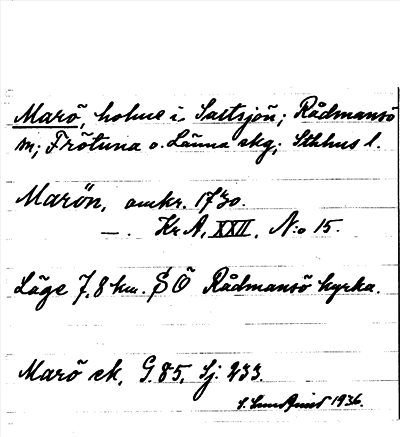 Marö, holme i Saltsjön; Rådmansö
sn; Frötuna o. Länna skg; Sthlms l.
Marön, omkr. 1730.
—. Kr A, XXII, N:o 15.
Läge 7,8 km. S Ö Rådmansö kyrka.
Marö ek, G. 85, Sj. 233.
1936.